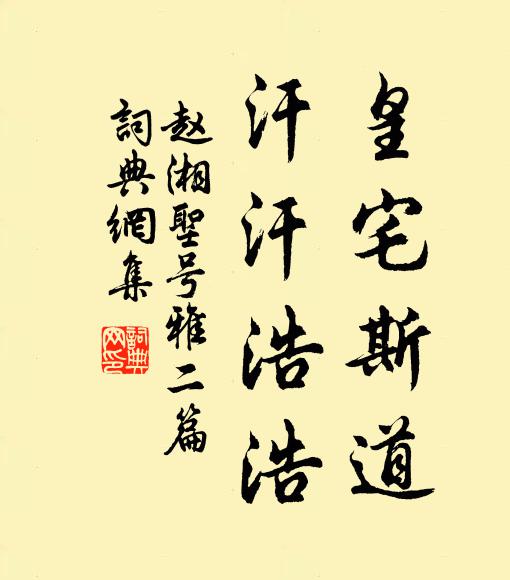 皇宅斯道
汗汗浩浩
赵湘聖号雅二篇
詞典網集
詞典网印